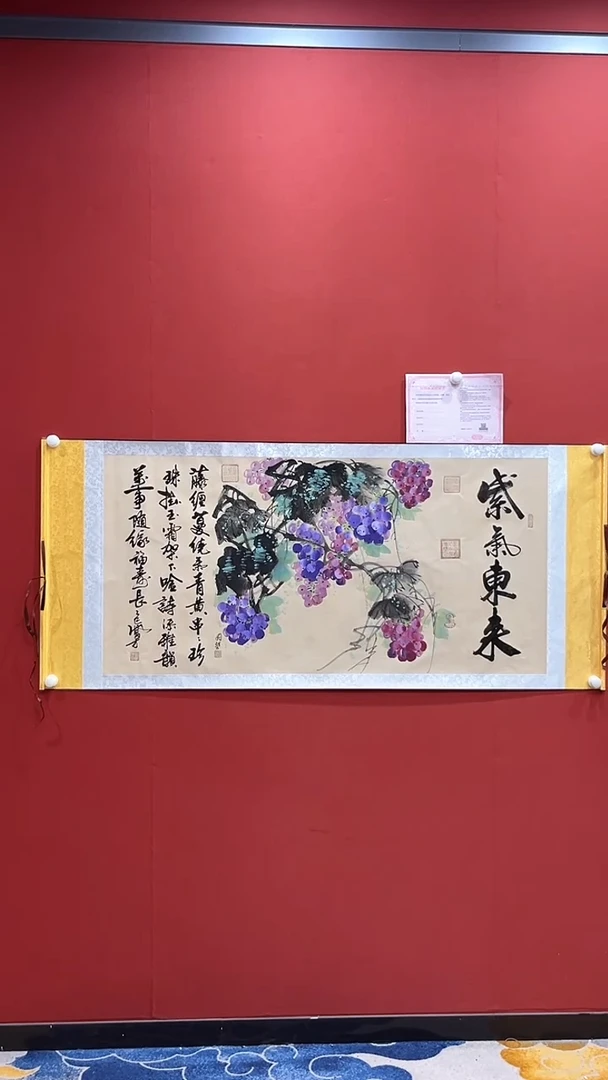 紫氣東来
藤纏蔓繞葉青黄串々珍
珠掛玉霜架下吟詩添雅韻
萬事隨緣福壽長